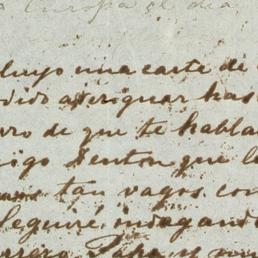 Europa el dia
luyo una carta de
dido aberiguar has
rro de que te habla
igo Senton que l
tan vagos con
leguiré, indagand
rrero, Papa y